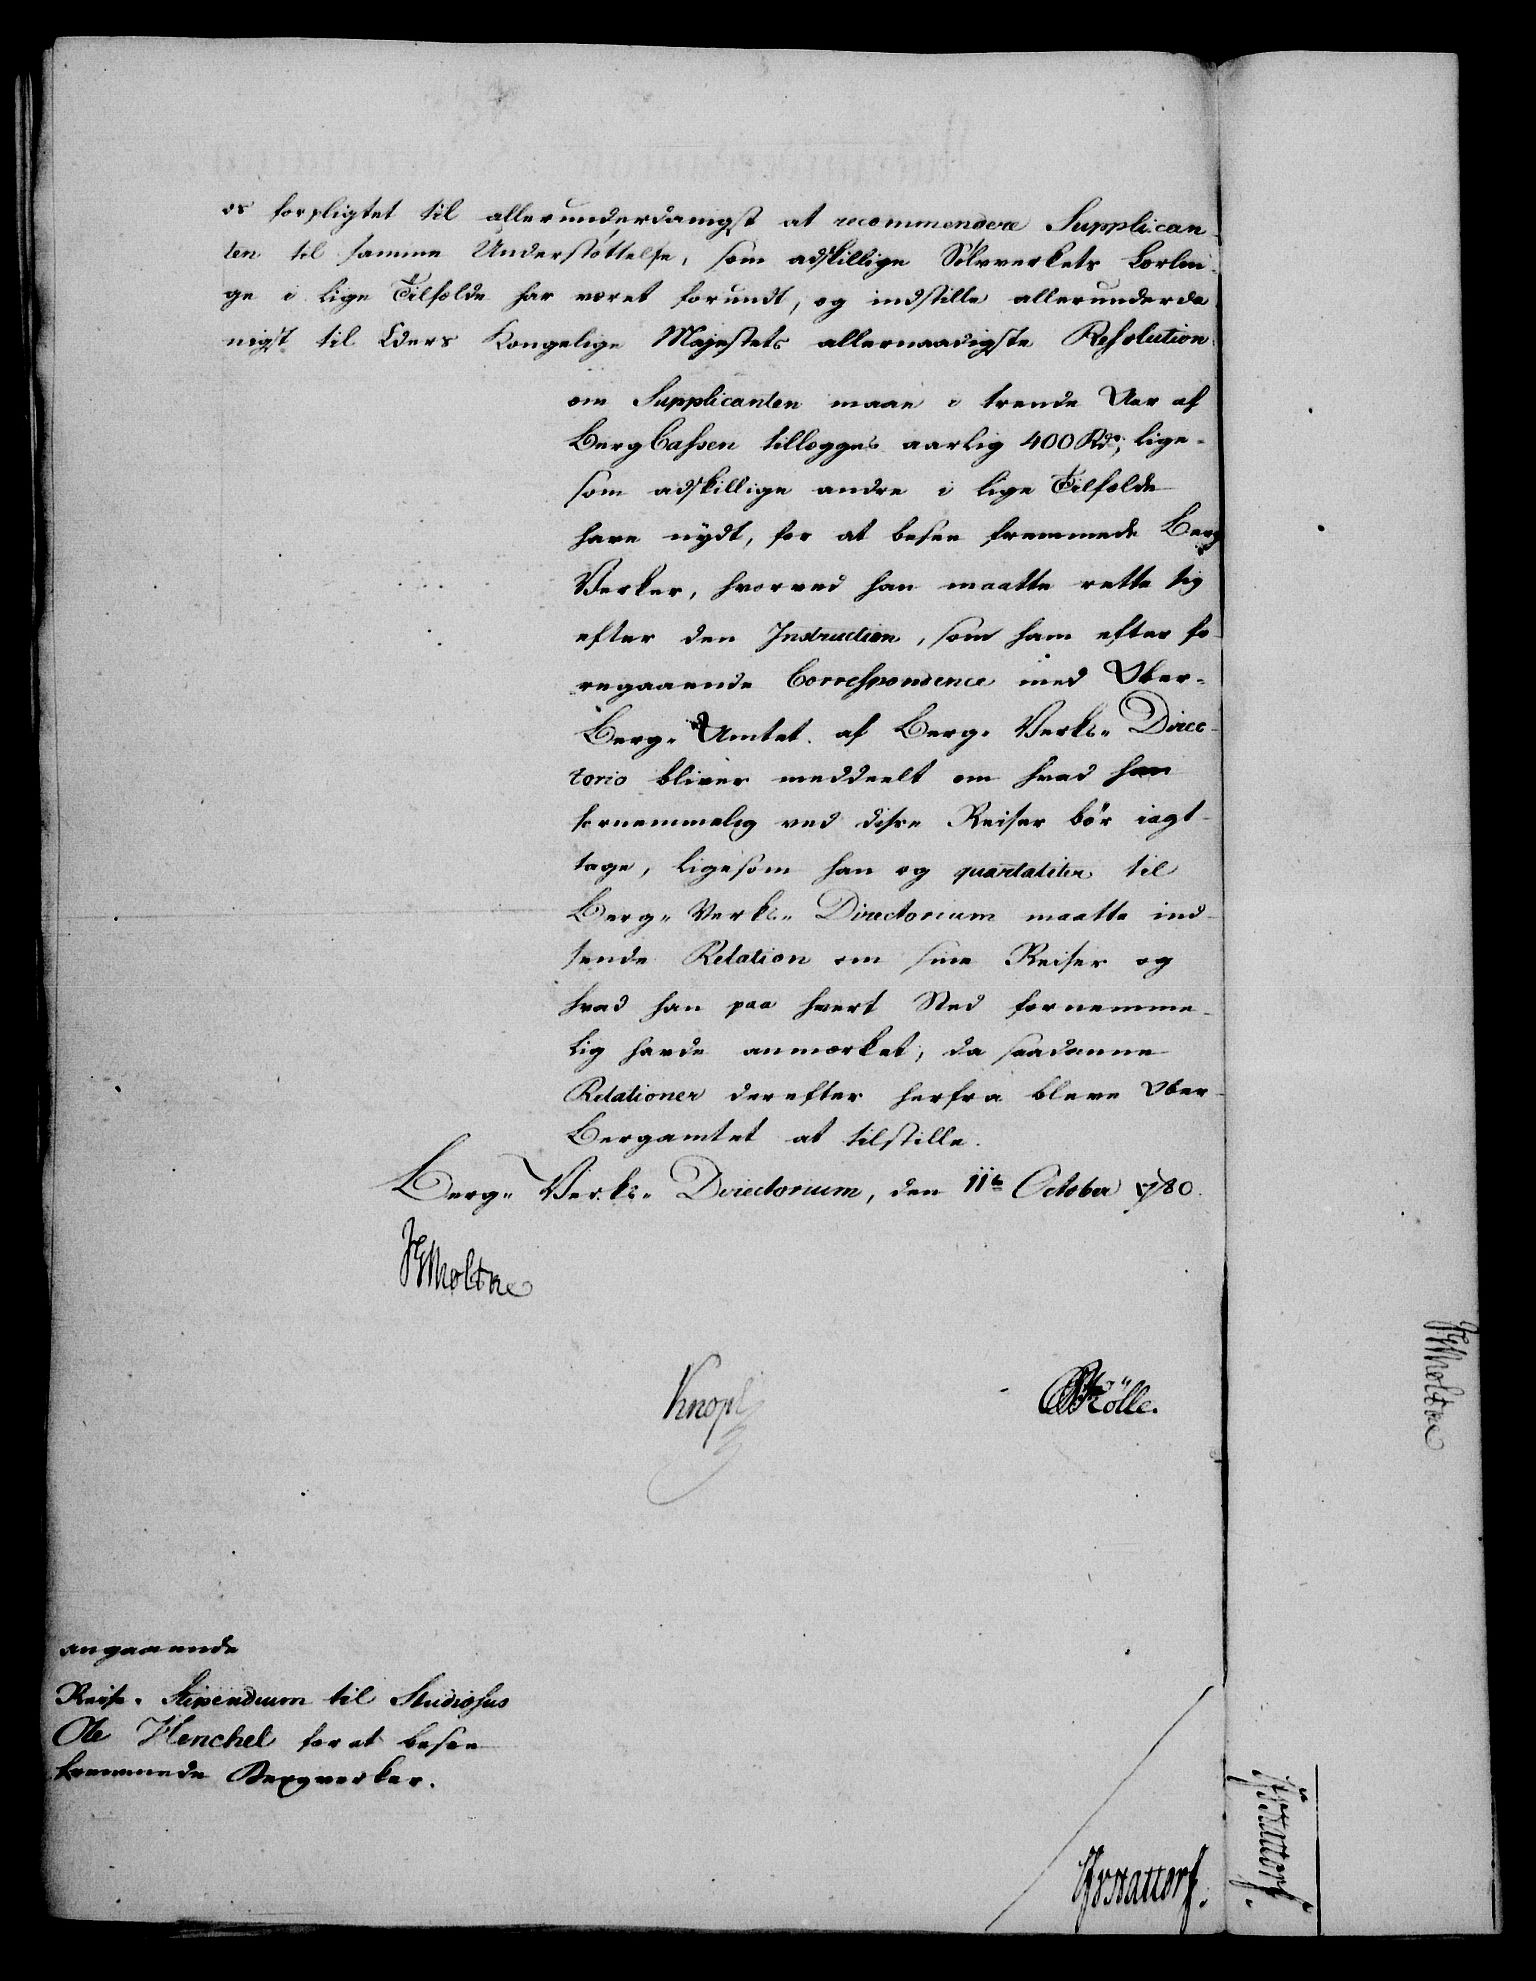 os forpligtet til allerunderdanigst at recommendere Supplican-
ten til samme Understøttelse, som adskillige Sølvverkets Lærlin-
ge i lige Tilfælde har været forundt, og indstille allerunderda
nigst til Eders Kongelige Majestets allernaadigste Resolution
om Supplicanten maae i trende Aar af
Berg Cassen tillægges aarlig 400 Rdr, lige-
som adskillige andre i lige Tilfælde
have nydt, for at besee fremmede Berg
Verker, hvorved han maatte rette sig
efter den Instruction, som ham efter fo-
regaaende Correspondence med Ober-
Berg-Amtet af Berg-Verks-Direc-
torio bliver meddeelt om hvad han
fornemmelig ved disse Reiser bør iagt-
tage, ligesom han og quartaliter til
Berg-Verks-Directorium maatte ind-
sende Relation om sine Reiser og
hvad han paa hvert Sted fornemme-
lig havde anmærket, da saadanne
Relationer derefter herfra bleve Ober-
Bergamtet at tilstille.
Berg-Verks-Directorium, den 11te October 1780.
Moltke
Knoph
Rölle.
angaaende
Reise-Stipendium til Studiosus
Ole Henchel for at besee
fremmede Bergverker.
Moltke